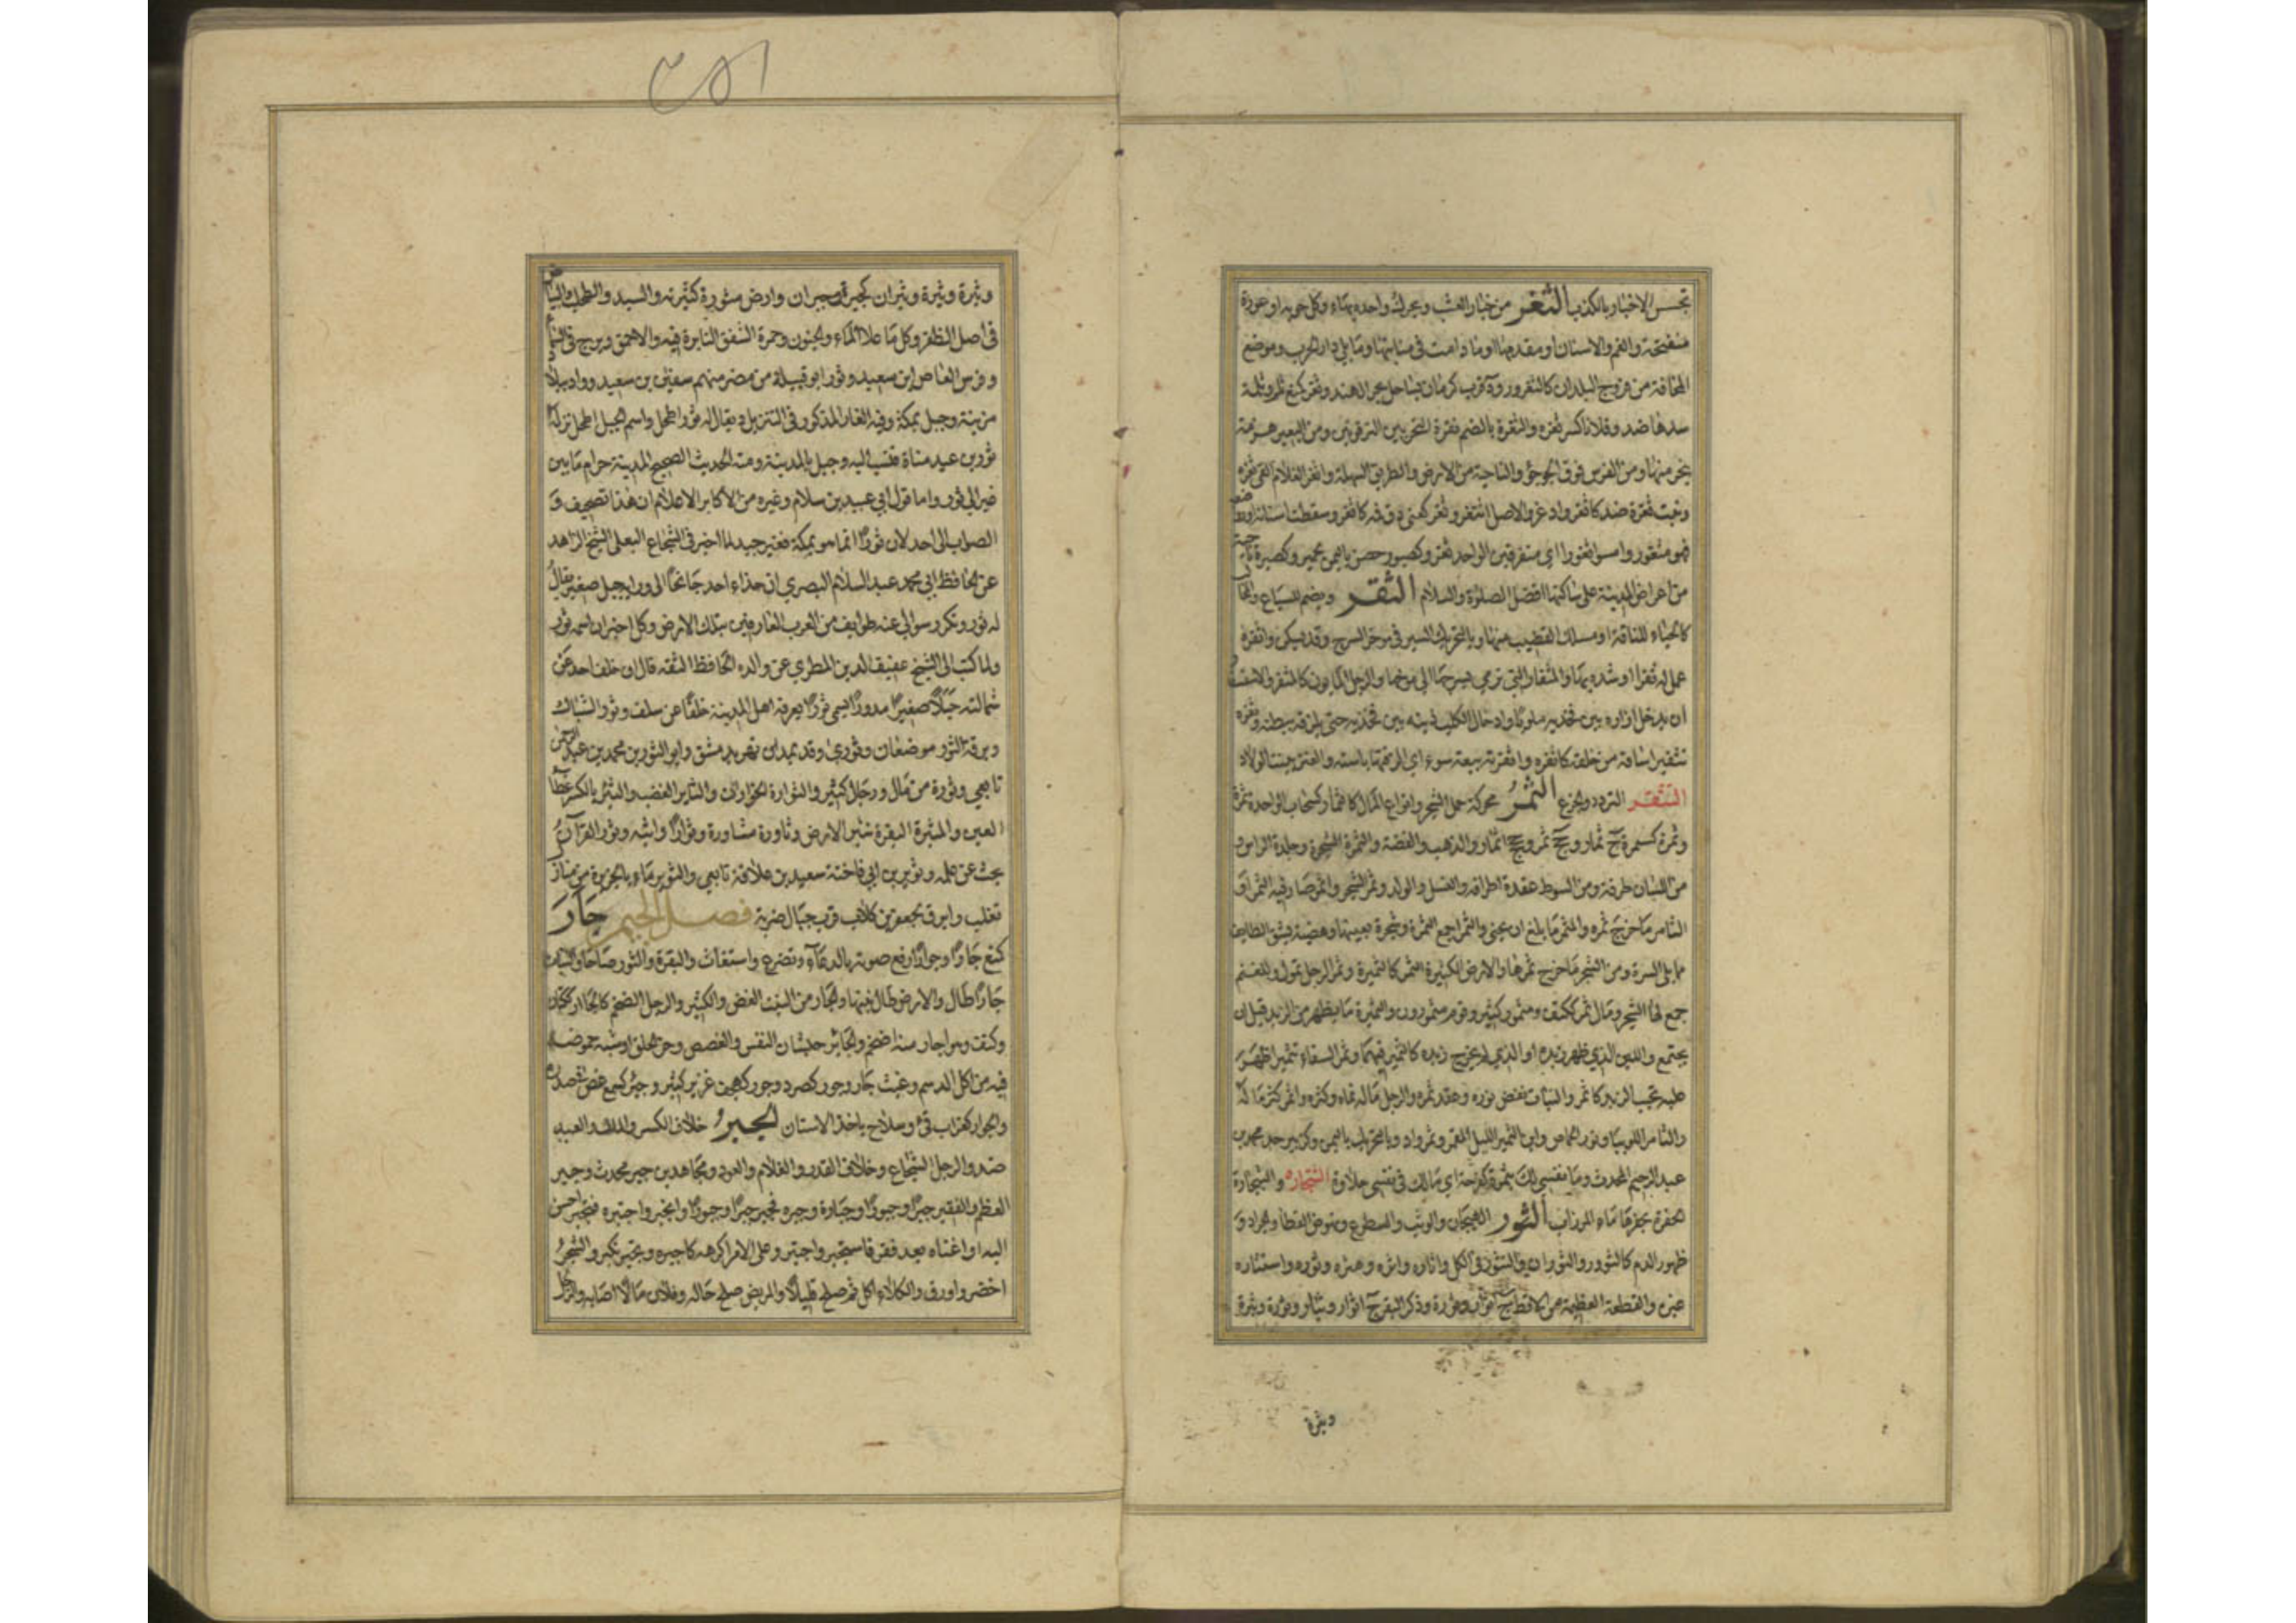 تجسس الاخبار بالكذب الثغر من خيار العشب ويحرك واحده بهاء وكل جوبة او عورة
منفتحة والفم والاسنان او مقدمها او ما دامت في منابتها وما يلي دار الحرب وموضع
المخافة من فروج البلدان كالثغرور و ة قرب كرمان بساحل بحر الهند وثغر كمنع ثلم وثلمة
سدها ضد وفلانا كسر ثغره والثغرة بالضم نقرة النحر بين الترقوتين ومن البعير هزمة
ينحر منها ومن الفرس فوق الجؤجؤ والناحية من الارض والطريق السهلة واثغر الغلام القى ثغره
ونبت ثغره ضد كاثغر وادغر والاصل اثتغر وثغر كعني دق فمه كاثغر وسقطت اسنانه او رواضعه
فهو مثغور وامسوا ثغورا اي متفرقين الواحد ثغر وكصبور حصن باليمن لحمير وكصبرة ناحية
من اعراض المدينة على ساكنها افضل الصلوة والسلام الثفر ويضم للسباع والمخالب
كالحياء للناقة او مسلك القضيب منها وبالتحريك السير في مؤخر السرج وقد يسكن واثفره
عمل له ثفرا او شده بها والمثفار التي ترمي بسرجها الى مؤخرها والرجل المأبون كالمثفر والاستثفار
ان يدخل ازاره بين فخذيه ملويا وادخال الكلب ذنبه بين فخذيه حتى يلزقه ببطنه وثفره
تثفيرا ساقه من خلفه كاثفره واثفرته بيعة سوء اي الزقتها باسته والعنز بينت الولاد
التثقر التردد والجزع الثمر محركة حمل الشجر وانواع المال كالثمار كسحاب الواحدة ثمرة
وثمرة كسمرة ج ثمار وجج ثمر وججج اثمار والذهب والفضة والثمرة الشجرة وجلدة الراس و
من اللسان طرفه ومن السوط عقدة اطرافه والنسل والولد وثمر الشجر واثمر صار فيه الثمر او
الثامر ما خرج ثمره والمثمر ما بلغ ان يجنى والثمراء جمع الثمرة وشجرة بعينها وهضبة بشق الطائف
مما يلي السراة ومن الشجر ما خرج ثمرها والارض الكثيرة الثمر كالثميرة وثمر الرجل تمول وللغنم
جمع لها الشجر ومال ثمر ككتف ومثمور كثير وقوم مثمورون والثميرة ما يظهر من الزبد قبل ان
يجتمع واللبن الذي ظهر زبده او الذي لم يخرج زبده كالثمير فيهما وثمر السقاء تثميرا ظهر
عليه تحبب الزبد كاثمر والنبات نفض نوره وعقد ثمره والرجل ماله نماه وكثره واثمر كثر ماله
والثامر اللوبيا ونور الحماض وابن الثمير الليل المقمر وثمر واد وبالتحريك باليمن وكزبير جد محمد بن
عبد الرحيم المحدث وما نفسي لك بثمرة كفرحة اي مالك في نفسي حلاوة الثنجارة والثبجارة
الحفرة يحفرها ماء المرزاب الثور الهيجان والوثب والسطوع ونهوض القطا والجراد و
ظهور الدم كالثؤور والثوران والتثور في الكل واثاره واثره وهثره وثوره واستثاره
غيره والقطعة العظيمة من الاقط ج اثوار وثورة وذكر البقر ج اثوار وثيار وثورة وثيرة
وثيرة
وثيرة وثيرة وثيران كجيرة وجيران وارض مثورة كثيرته والسيد والطحلب والبياض
في اصل الظفر وكل ما علا الماء والجنون وحمرة الشفق الثائرة فيه والاحمق وبرج في السماء
وفرس العاص ابن سعيد وثور ابو قبيلة من مضر منهم سفين بن سعيد وواد ببلاد
مزينة وجبل بمكة وفيه الغار المذكور في التنزيل ويقال له ثور اطحل واسم الجبل اطحل نزله
ثور بن عبد مناة فنسب اليه وجبل بالمدينة ومنه الحديث الصحيح المدينة حرام ما بين
عير الى ثور واما قول ابي عبيد بن سلام وغيره من الاكابر الاعلام ان هذا تصحيف و
الصواب الى احد لان ثورا انما هو بمكة فغير جيد لما اخبر في الشجاع البعلي الشيخ الزاهد
عن الحافظ ابي محمد عبد السلام البصري ان حذاء احد جانحا الى ورائه جبل صغير يقال
له ثور وتكرر سوالي عنه طوايف من العرب العارفين بتلك الارض وكل اخبر ان اسمه ثور
ولما كتب الى الشيخ عفيف الدين المطري عن والده الحافظ الثقه قال ان خلف احد عن
شماله جبلا صغيرا مدورا يسمى ثورا يعرفه اهل المدينة خلفا عن سلف وثور الشباك
وبرقة الثور موضعان وثورى وقد يمد ابن نهر بدمشق وابو الثورين محمد بن عبد الرحمن
تابعي وثورة من مال ورجال كثير والثوارة الخوران والثاير الغضب والثير بالكسر غطاء
العين والمثيرة البقرة تثير الارض وثاورة مثاورة وثوارا واثبه وثور القرآن
بحث عن علمه وثوير بن ابي فاختة سعيد بن علاقة تابعي والثوير ماء بالجزيرة من منازل
تغلب وابرق لجعفر بن كلاب قرب جبال ضرية فصل الجيم جأر
كمنع جأرا وجؤارا رفع صوته بالدعاء وتضرع واستغاث والبقرة والثور صاحا والنبات
جأرا طال والارض طال نبتها والجأر من النبت الغض والكثير والرجل الضخم كالجأار ككتان
وكتف وهو اجأر منه اضخم والجائر جيشان النفس والغصص وحر الحلق او شبه حموضة
فيه من اكل الدسم وغيث جأر وجؤر كصرد وجور كهجف غزير كثير وجئر كسمع غص في صدره
والجؤار كغراب قيء وسلاح ياخذ الانسان الجبر خلاف الكسر والملك والعبد
ضد والرجل الشجاع وخلاف القدر والغلام والعود ومجاهد بن جبر محدث وجبر
العظم والفقير جبرا وجبورا وجبارة وجبره فجبر جبرا وجبورا وانجبر واجتبره فتجبر احسن
اليه او اغناه بعد فقر فاستجبر واجتبر وعلى الامر اكرهه كاجبره وتجبر تكبر والشجر
اخضر واورق والكلاء اكل ثم صلح قليلا والمريض صلح حاله وفلان مالا اصابه والرجل